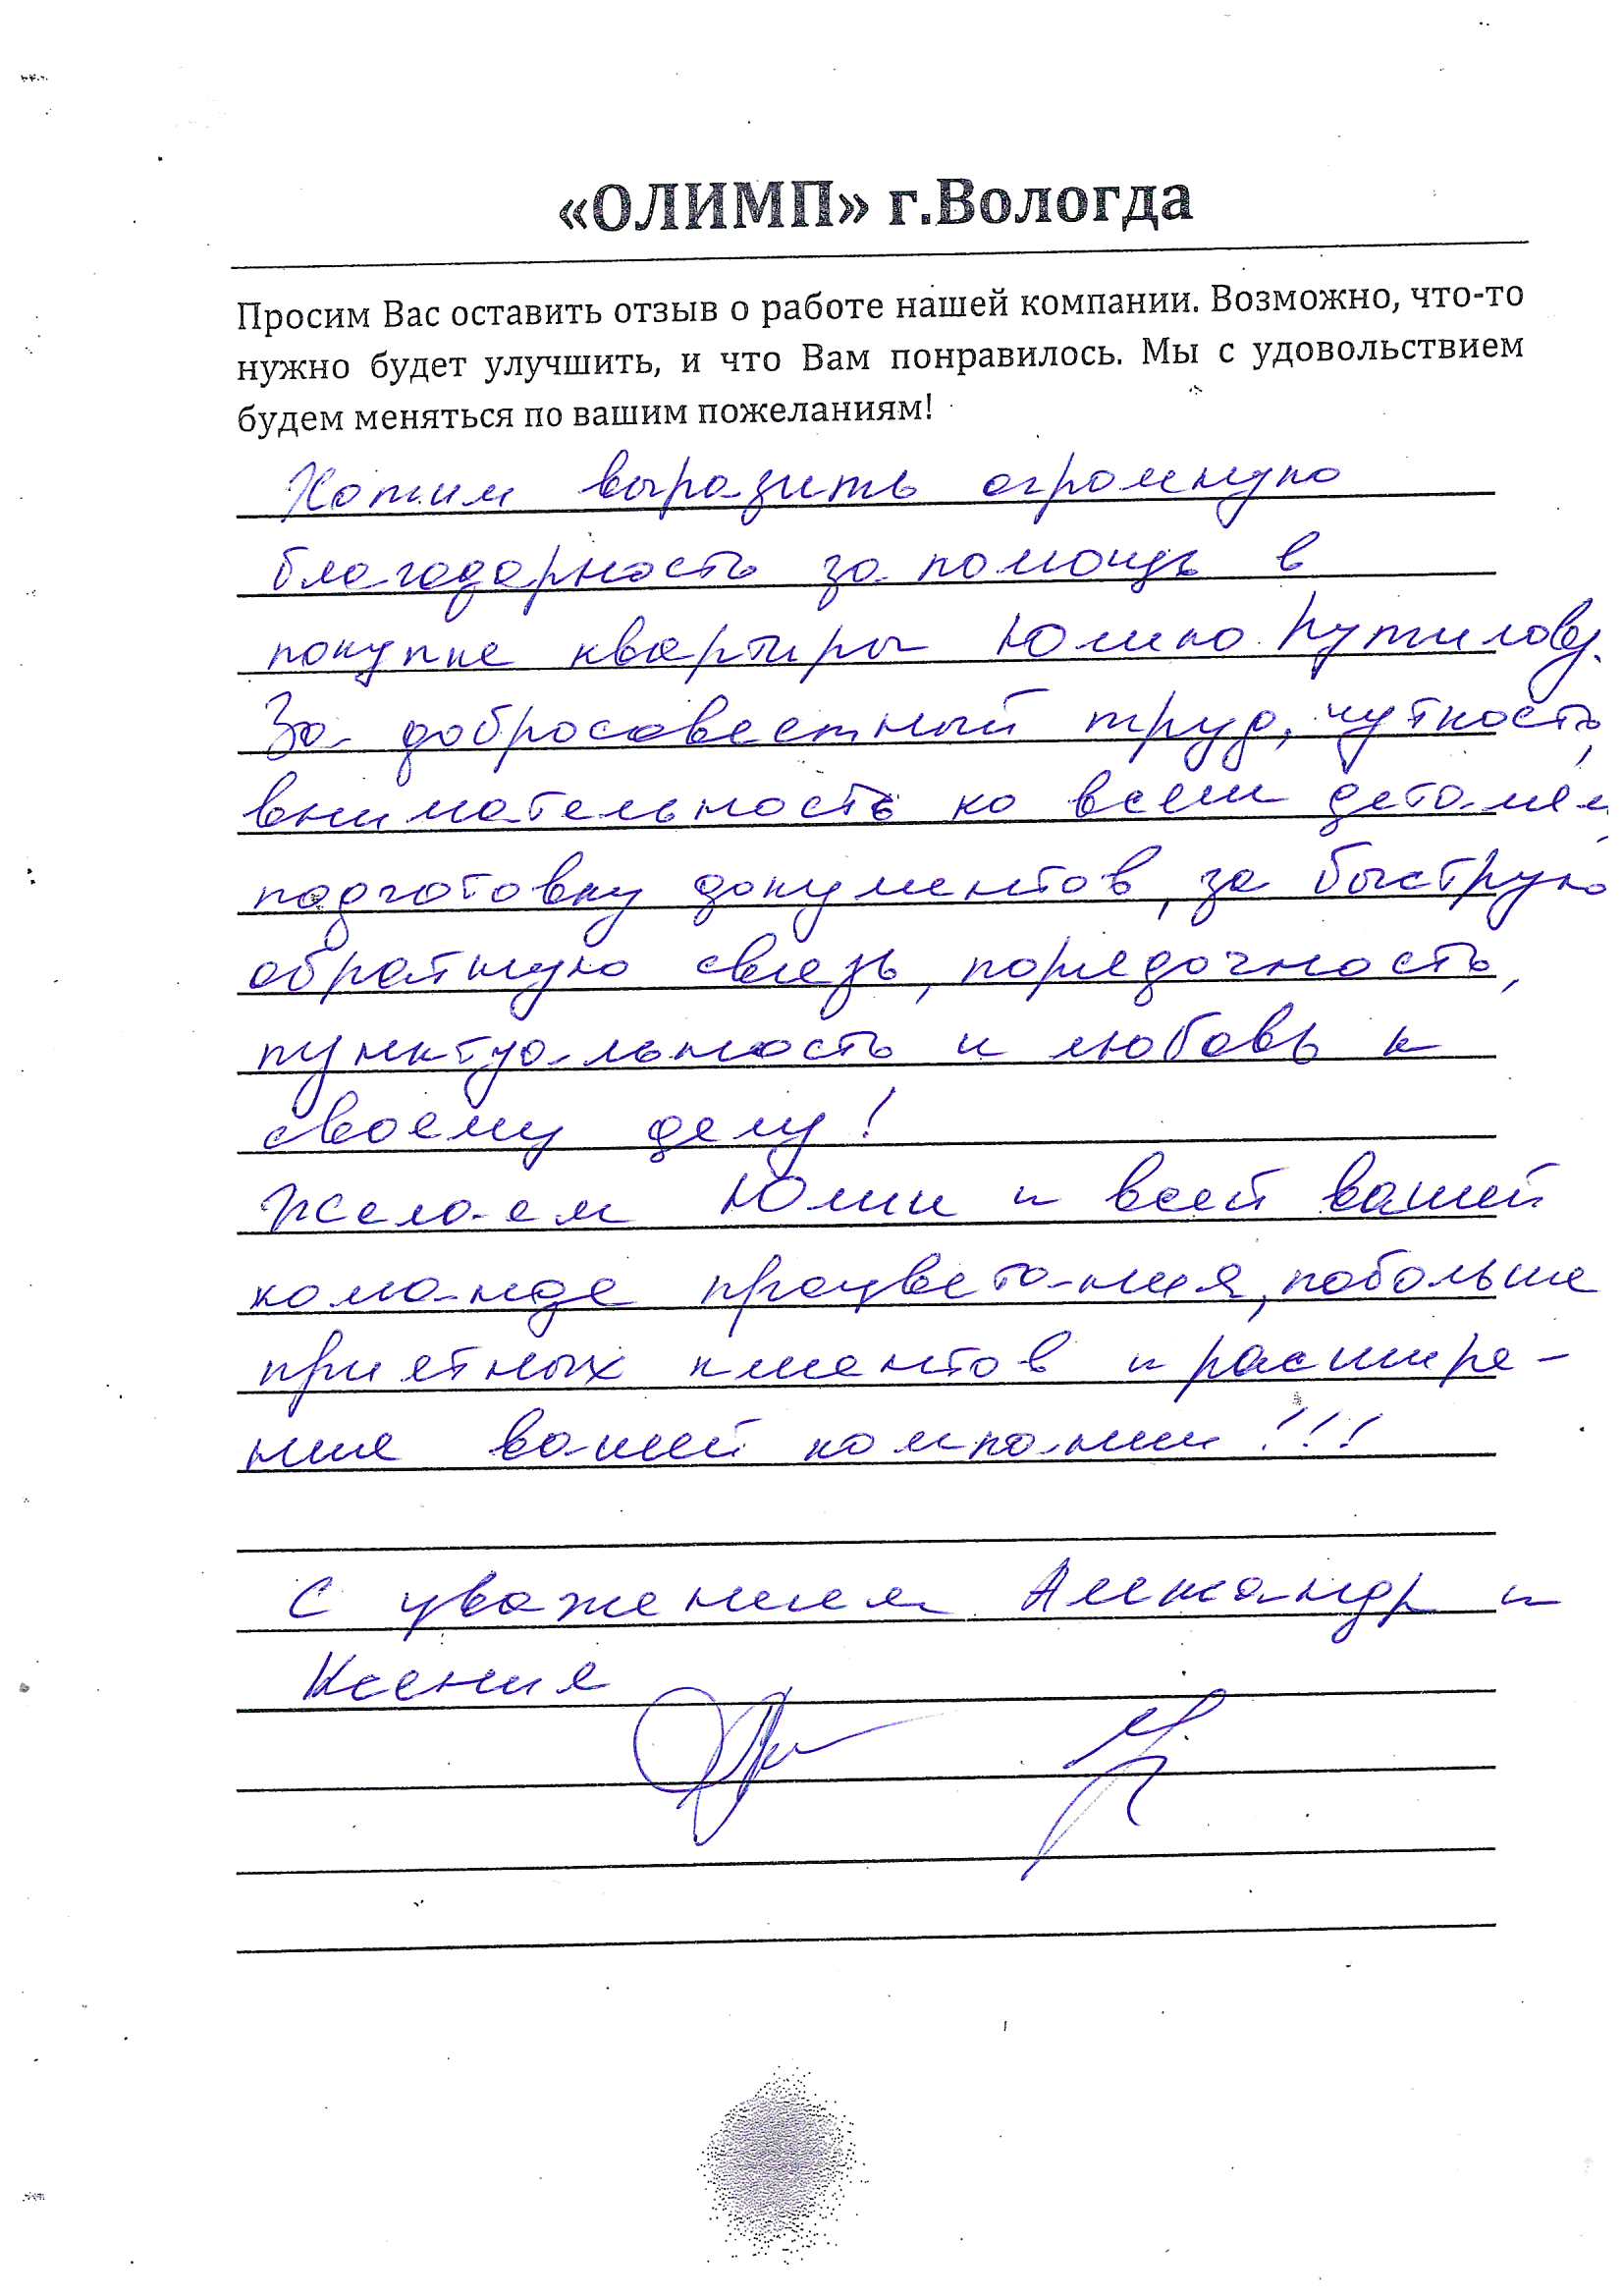 «ОЛИМП» г.Вологда
Просим Вас оставить отзыв о работе нашей компании. Возможно, что-то
нужно будет улучшить, и что Вам понравилось. Мы с удовольствием
будем меняться по вашим пожеланиям!
Хотим выразить огромную
благодарность за помощь в
покупке квартиры Юлию Путилову.
За добросовестный труд, чуткость,
внимательность ко всем деталям,
подготовку документов, за быструю
обратную связь, порядочность,
пунктуальность и любовь к
своему делу!
Желаем Юлии и всей вашей
команде процветания, побольше
приятных клиентов и расшире-
ние вашей компании!!!
С уважением Александр и
Ксения